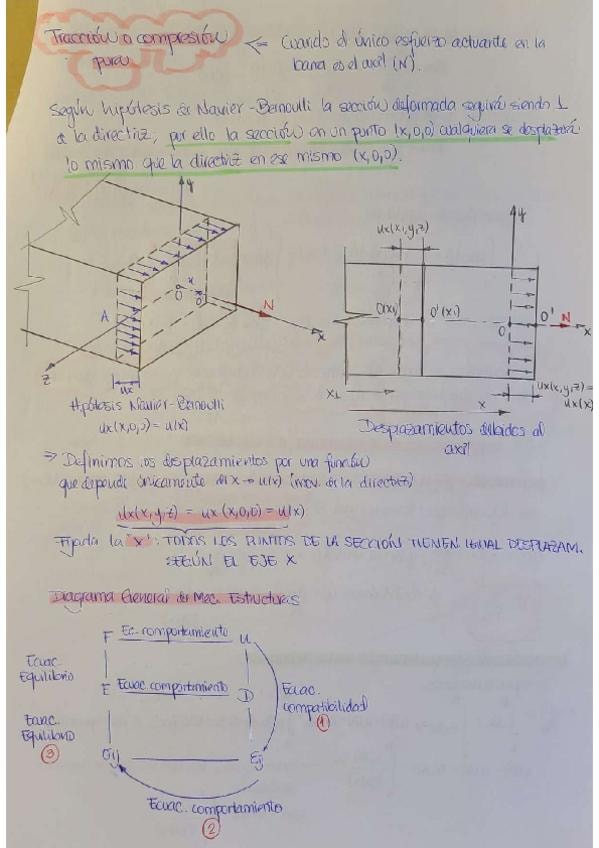 Tracción o compresión pura
⇐ Cuando el único esfuerzo actuante en la
barra es el axil (N).
Según hipótesis de Navier-Bernoulli la sección deformada seguirá siendo ⊥
a la directriz; por ello la sección en un punto (x,0,0) cualquiera se desplazará
lo mismo que la directriz en ese mismo (x,0,0).
y
A
O
x
O'
N
x
z
ux
Hipótesis Navier-Bernoulli
ux(x,0,0) = u(x)
ux(x,y,z)
y
O'(x1)
O
O'
N
x
x1
x
ux(x,y,z) =
ux(x)
Desplazamientos debidos al
axil
⇒ Definimos los desplazamientos por una función
que depende únicamente del x → u(x) (mov. de la directriz)
ux(x,y,z) = ux(x,0,0) = u(x)
Fijada la "x": TODOS LOS PUNTOS DE LA SECCIÓN TIENEN IGUAL DESPLAZAM.
SEGÚN EL EJE X
Diagrama General de Mec. Estructuras
F Ec. comportamiento u
Ecuac.
Equilibrio
E Ecuac. comportamiento D
Ecuac.
compatibilidad
①
Ecuac.
Equilibrio
③
σij
Eij
Ecuac. comportamiento
②